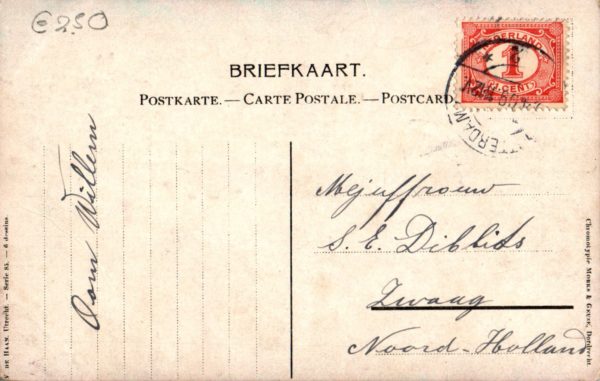 € 2.50
BRIEFKAART.
POSTKARTE.—CARTE POSTALE.—POSTCARD.
NEDERLAND
1
CENT
TERDAM
Oom Willem
Mejuffrouw
S. E. Dibbits
Zwaag
Noord-Holland
DE HAAN, Utrecht. — Serie 83. — 6 dessins.
Chromotypie MORKS & GEUZE, Dordrecht